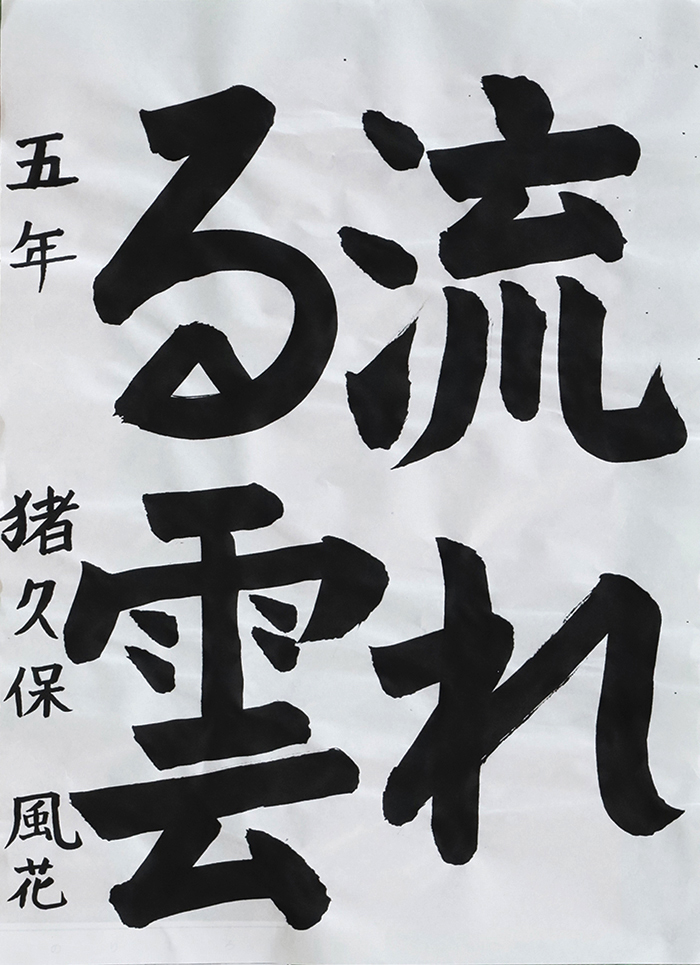 流れ
る雲
五年 猪久保 風花